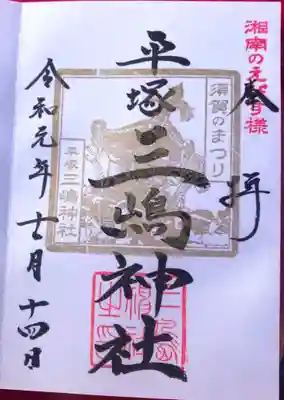 湘南のえびす様
奉拝
須賀のまつり
平塚三嶋神社
平塚
三嶋神社
令和元年十一月十四日